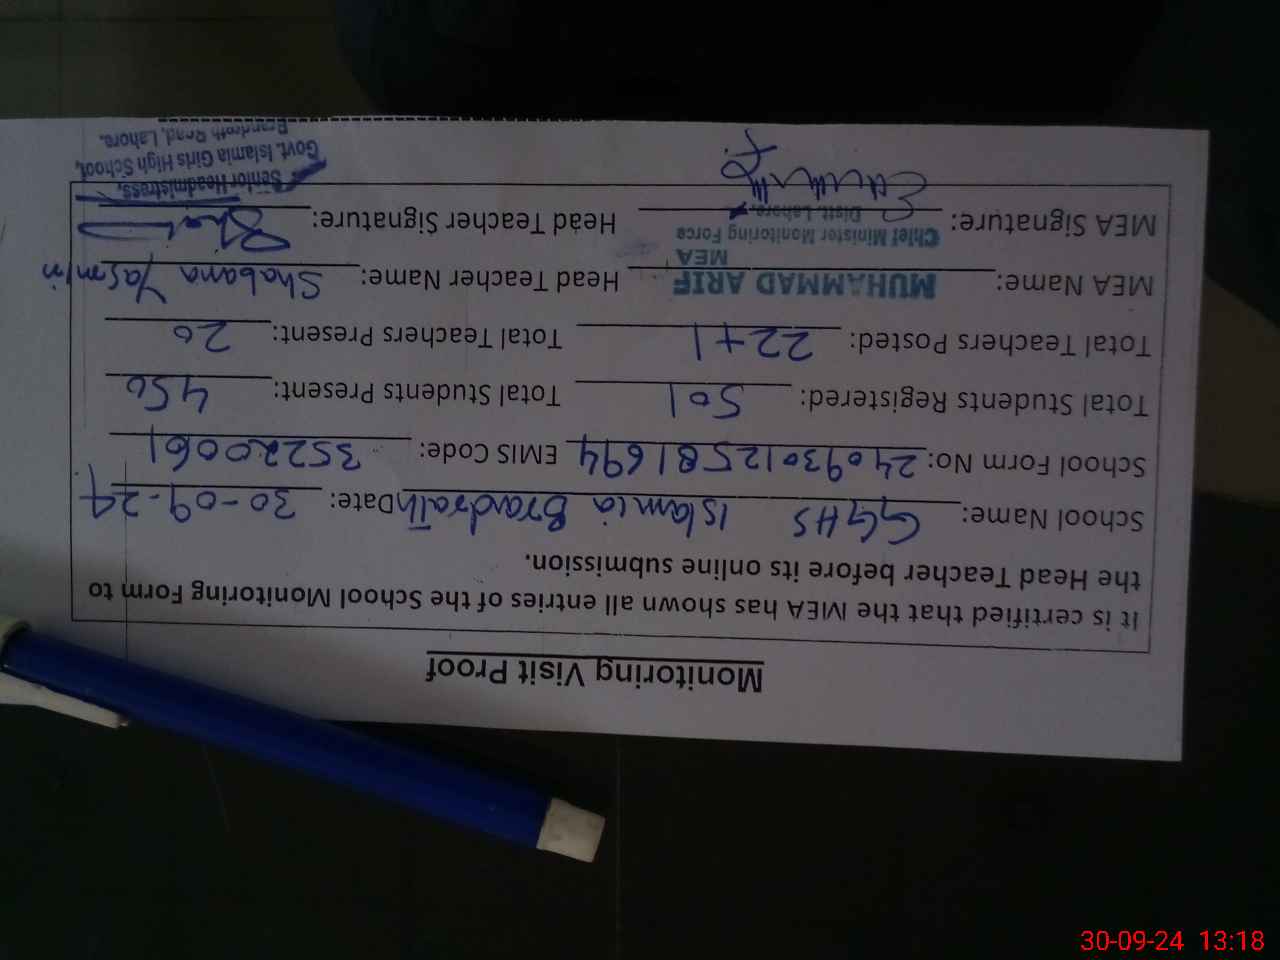 Monitoring Visit Proof
It is certified that the MEA has shown all entries of the School Monitoring Form to
the Head Teacher before its online submission.
School Name: GGHS Islamia Brandrath Date: 30-09-24
School Form No: 2409301258 1694 EMIS Code: 35220061
Total Students Registered: 501 Total Students Present: 450
Total Teachers Posted: 22+1 Total Teachers Present: 20
MEA Name: MUHAMMAD ARIF Head Teacher Name: Shabana Yasmin
MEA
Chief Minister Monitoring Force
Distt. Lahore.
MEA Signature: Head Teacher Signature:
Senior Headmistress,
Govt. Islamia Girls High School,
Brandrath Road, Lahore.
30-09-24 13:18